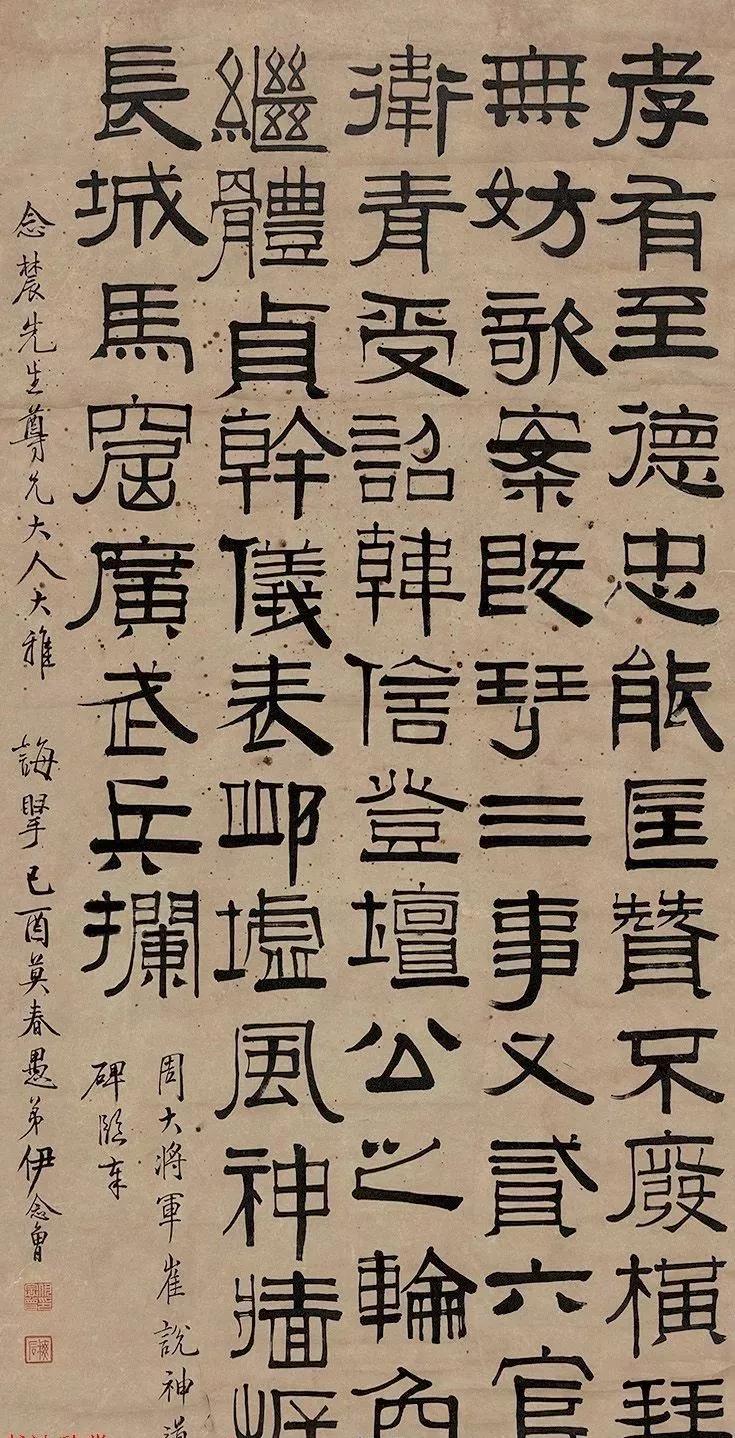 孝有至德忠能匡贊不廢橫琴
無妨歌案既琴三事又貳六官
衛青受詔韓信登壇公之輪
繼體貞幹儀表邱墟風神牆岸
長城馬窟廣武兵攔
周大將軍崔說神道
碑臨奉
念農先生尊兄大人大雅 誨擊己酉莫春愚弟伊念曾